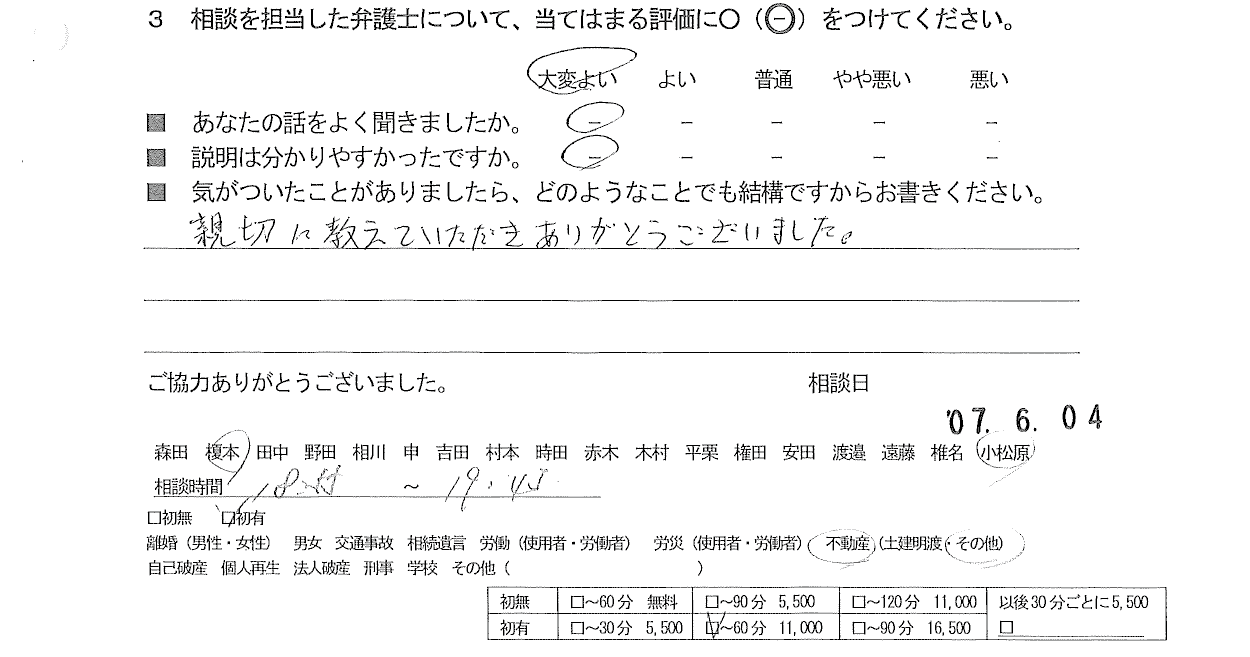 3 相談を担当した弁護士について、当てはまる評価に○(㊀)をつけてください。
大変よい よい 普通 やや悪い 悪い
■ あなたの話をよく聞きましたか。 － － － － －
■ 説明は分かりやすかったですか。 － － － － －
■ 気がついたことがありましたら、どのようなことでも結構ですからお書きください。
親切に教えていただきありがとうございました。
ご協力ありがとうございました。 相談日
'07. 6. 04
森田 榎本 田中 野田 相川 申 吉田 村本 時田 赤木 木村 平栗 権田 安田 渡邉 遠藤 椎名 小松原
相談時間 ～ 19:45
□初無 □初有
離婚(男性・女性) 男女 交通事故 相続遺言 労働(使用者・労働者) 労災(使用者・労働者) 不動産(土建明渡・その他)
自己破産 個人再生 法人破産 刑事 学校 その他( )
初無 □～60分 無料 □～90分 5,500 □～120分 11,000 以後30分ごとに5,500
初有 □～30分 5,500 □～60分 11,000 □～90分 16,500 □